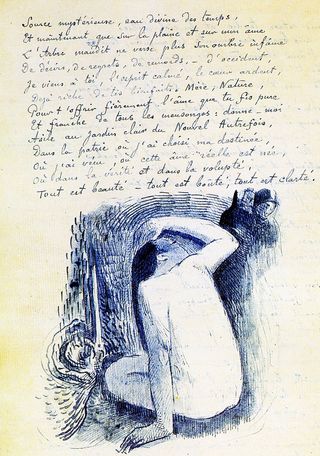 Source mystérieuse, eau divine des temps,
Et maintenant que sur la plaine et sur mon âme
L'Arbre maudit ne verse plus son ombre infâme
De désirs, de regrets, de remords, – d'occident,
Je viens à toi, l'esprit calmé, le cœur ardent,
Déjà de tes bienfaits, Mère, Nature,
Pour t'offrir fièrement l'âme que tu fis pure
Et franche de tous les mensonges: donne-moi
Asile au jardin clair du Nouvel Autrefois,
Dans la patrie où j'ai choisi ma destinée,
Où j'ai vécu, où cette âme réelle est née,
Où dans la vérité et dans la volupté
Tout est beauté – tout est bonté, tout est clarté.